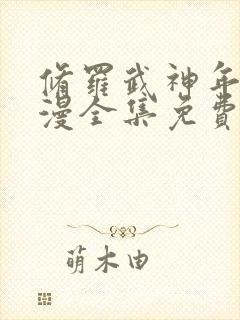 脩羅武神年
漫全集免費
萌木由